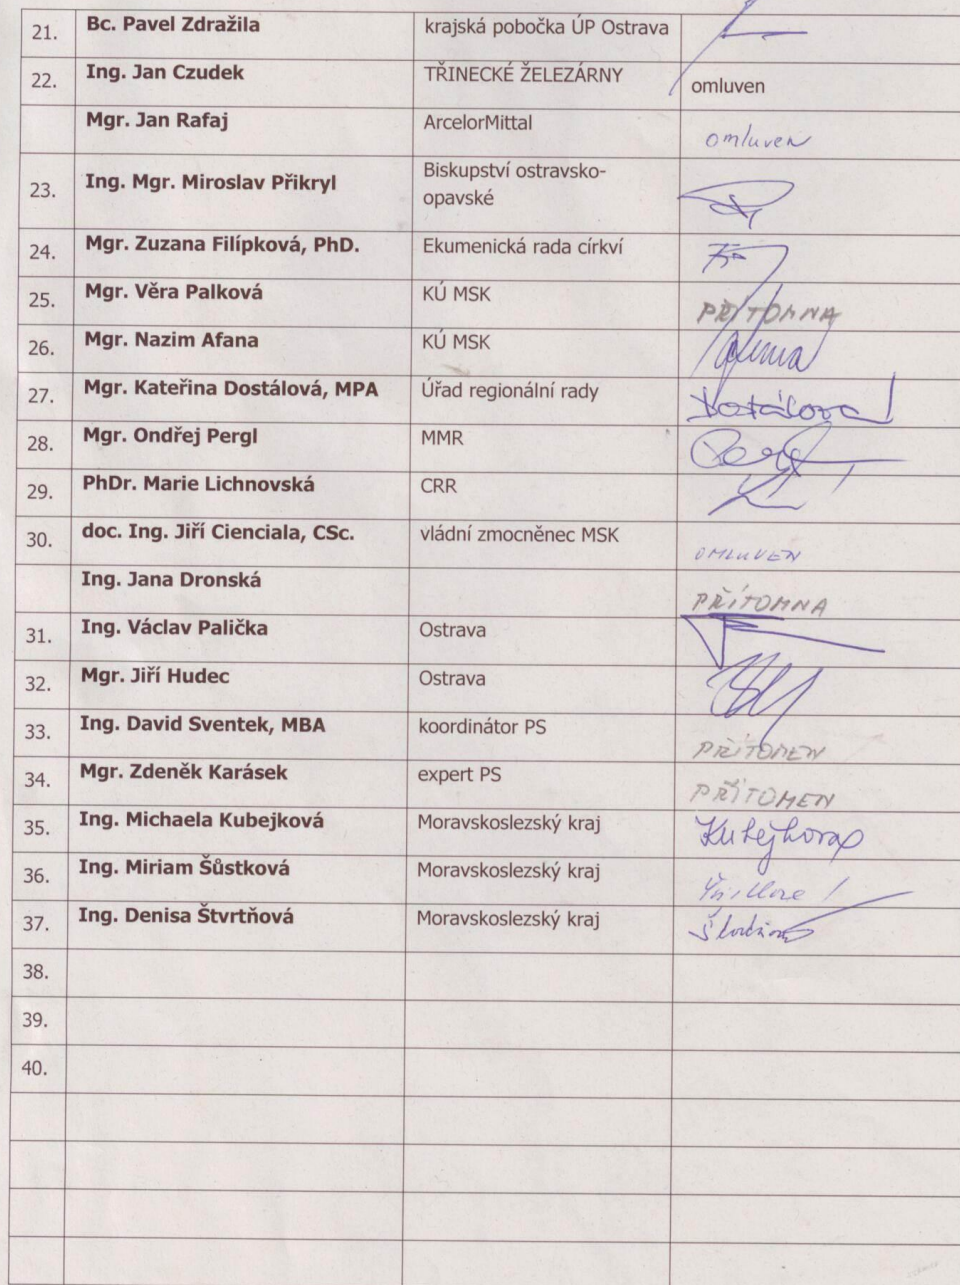 21. Bc. Pavel Zdražila krajská pobočka ÚP Ostrava
22. Ing. Jan Czudek TŘINECKÉ ŽELEZÁRNY omluven
Mgr. Jan Rafaj ArcelorMittal omluven
23. Ing. Mgr. Miroslav Přikryl Biskupství ostravsko-
opavské
24. Mgr. Zuzana Filípková, PhD. Ekumenická rada církví
25. Mgr. Věra Palková KÚ MSK PŘÍTOMNA
26. Mgr. Nazim Afana KÚ MSK
27. Mgr. Kateřina Dostálová, MPA Úřad regionální rady Dostálová
28. Mgr. Ondřej Pergl MMR
29. PhDr. Marie Lichnovská CRR
30. doc. Ing. Jiří Cienciala, CSc. vládní zmocněnec MSK OMLUVEN
Ing. Jana Dronská PŘÍTOMNA
31. Ing. Václav Palička Ostrava
32. Mgr. Jiří Hudec Ostrava
33. Ing. David Sventek, MBA koordinátor PS PŘÍTOMEN
34. Mgr. Zdeněk Karásek expert PS PŘÍTOMEN
35. Ing. Michaela Kubejková Moravskoslezský kraj Kubejková
36. Ing. Miriam Šůstková Moravskoslezský kraj
37. Ing. Denisa Štvrtňová Moravskoslezský kraj
38.
39.
40.